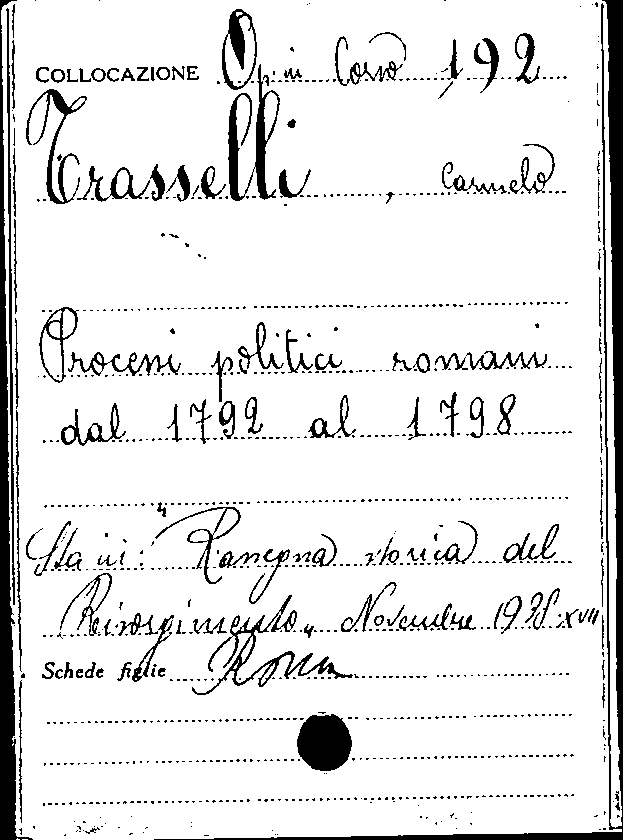 COLLOCAZIONE Op. in Corso 192
Trasselli, Carmelo
Processi politici romani
dal 1792 al 1798
Sta in: "Rassegna storica del
Risorgimento" Novembre 1938. XVII
Schede figlie Roma